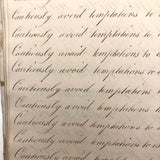 Cautiously avoid temptations to
Cautiously avoid temptations to
Cautiously avoid temptations to
Cautiously avoid temptations to
Cautiously avoid temptations to
Cautiously avoid temptations to
Cautiously avoid temptations
Cautiously avoid temptations
Cautiously avoid temptations